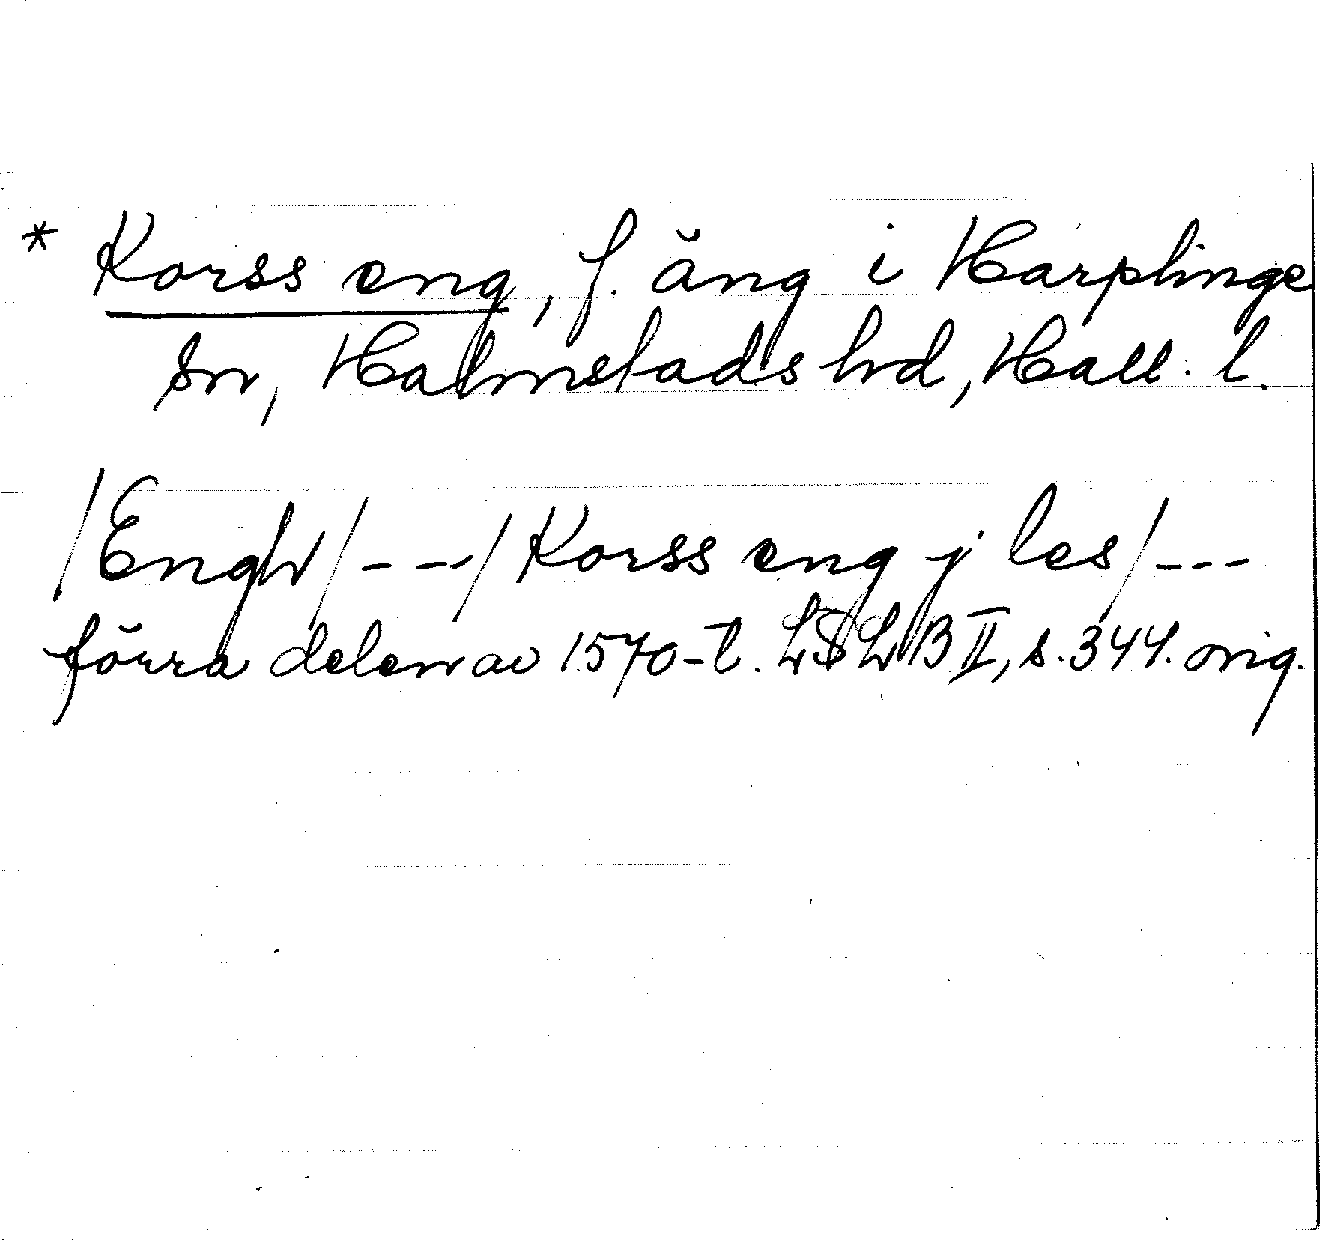 * Korss eng, f. äng i Harplinge
sn, Halmstads hd, Hall. l.
/Engh/---/Korss eng j les/---
förra delen av 1570-t. LSLB II, s. 344. orig.